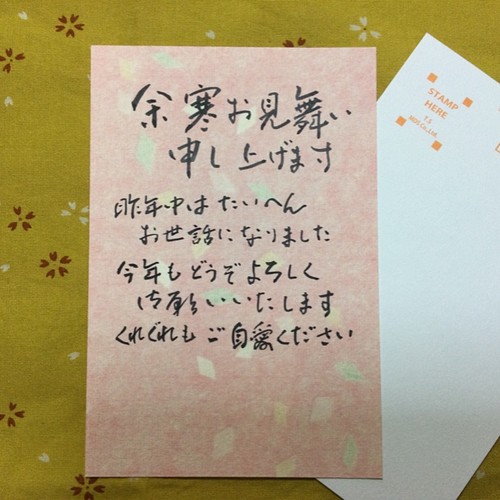 余寒お見舞い
申し上げます
昨年中はたいへん
お世話になりました
今年もどうぞよろしく
御願いいたします
くれぐれもご自愛ください
STAMP
HERE